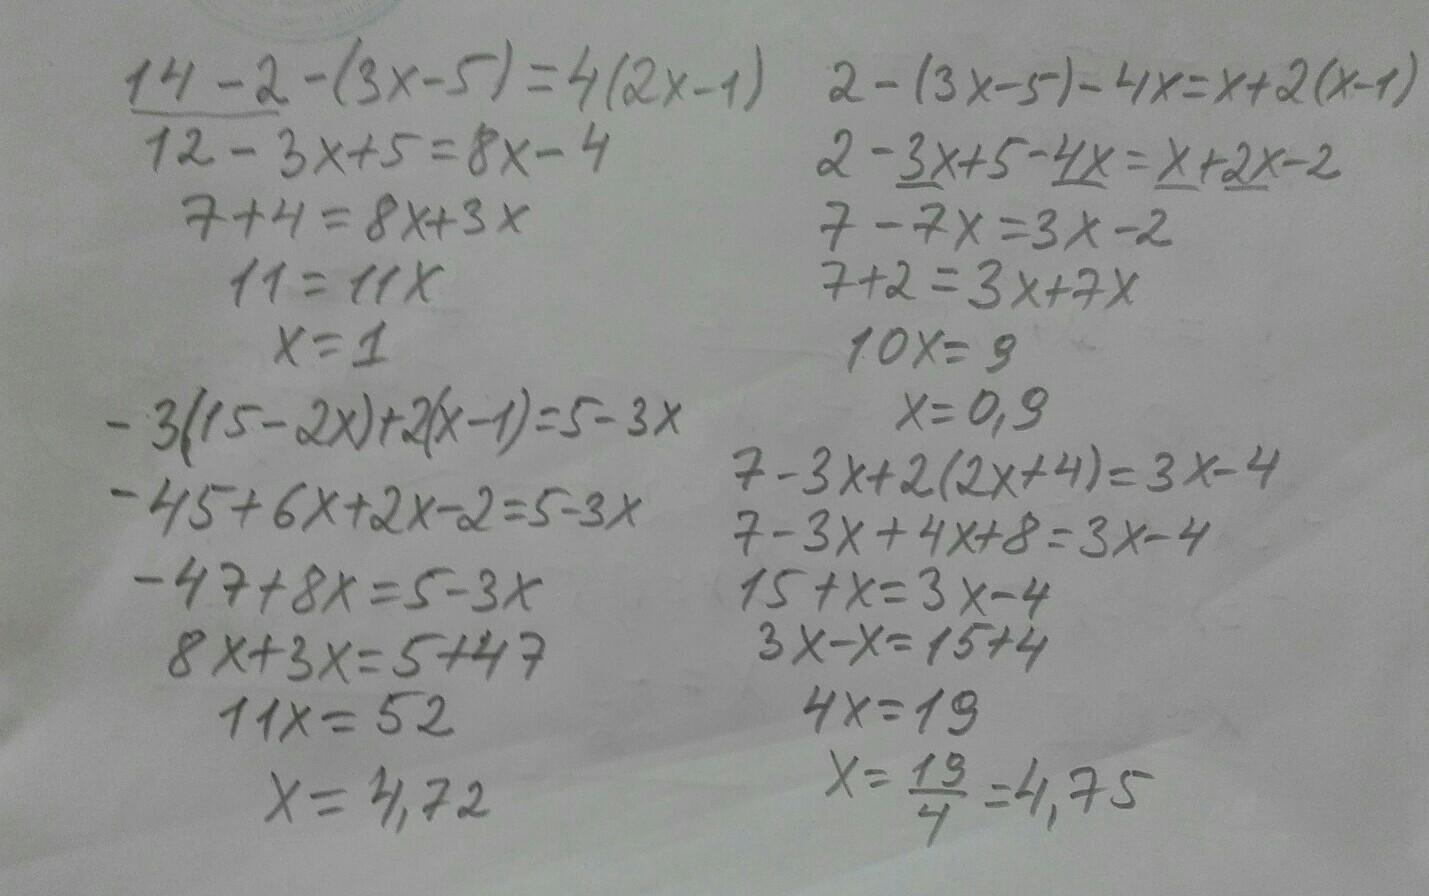 14-2-(3x-5)=4(2x-1)
12-3x+5=8x-4
7+4=8x+3x
11=11x
x=1
-3(15-2x)+2(x-1)=5-3x
-45+6x+2x-2=5-3x
-47+8x=5-3x
8x+3x=5+47
11x=52
x=4,72
2-(3x-5)-4x=x+2(x-1)
2-3x+5-4x=x+2x-2
7-7x=3x-2
7+2=3x+7x
10x=9
x=0,9
7-3x+2(2x+4)=3x-4
7-3x+4x+8=3x-4
15+x=3x-4
3x-x=15+4
4x=19
x=19/4=4,75